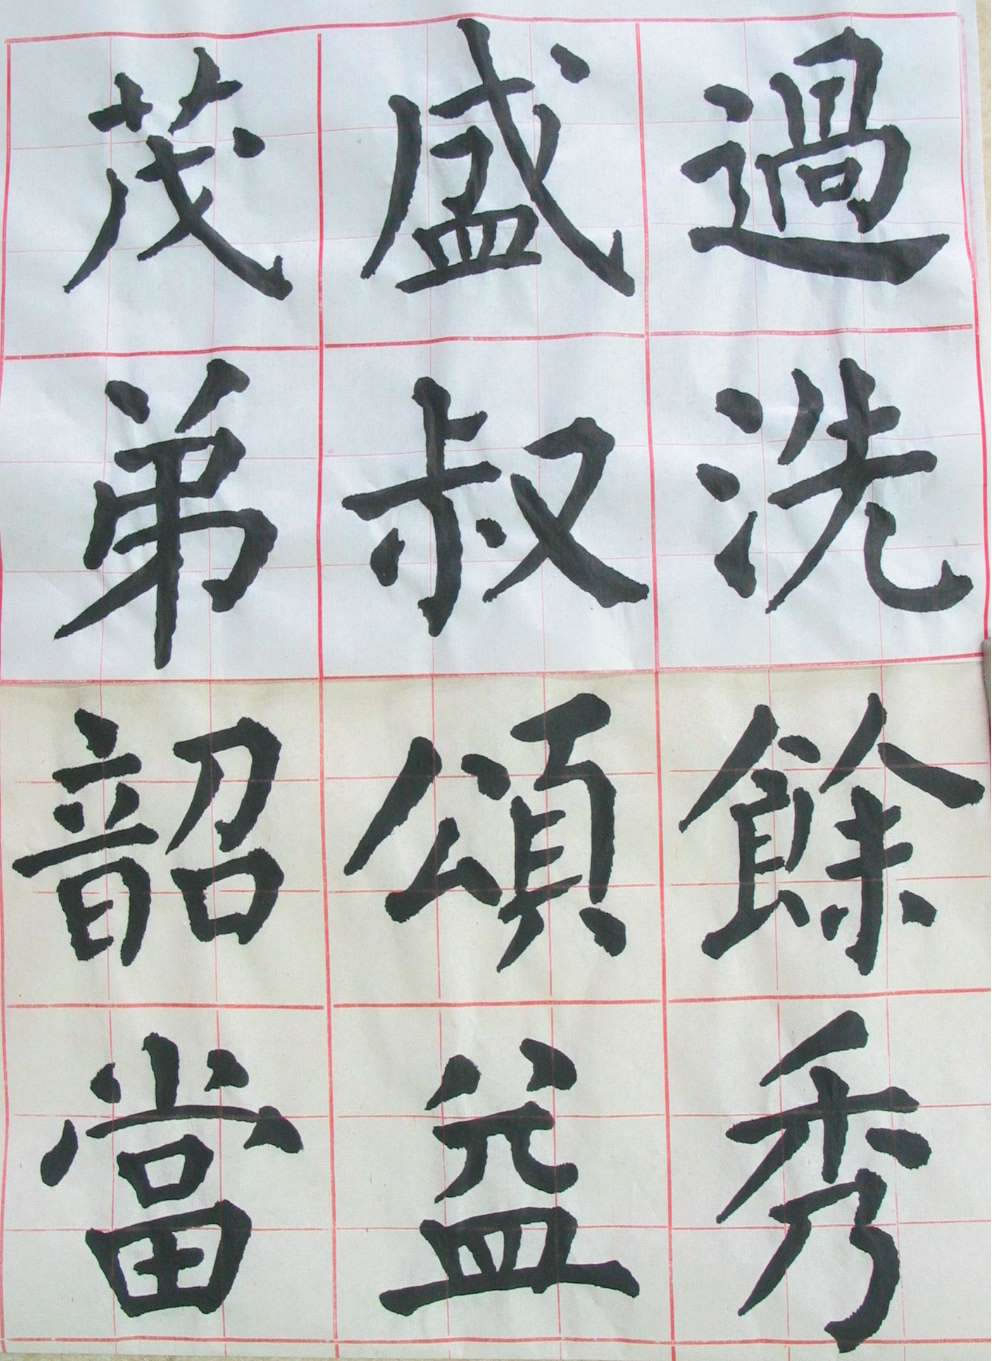 過洗餘秀
盛叔頌益
茂弟韶當